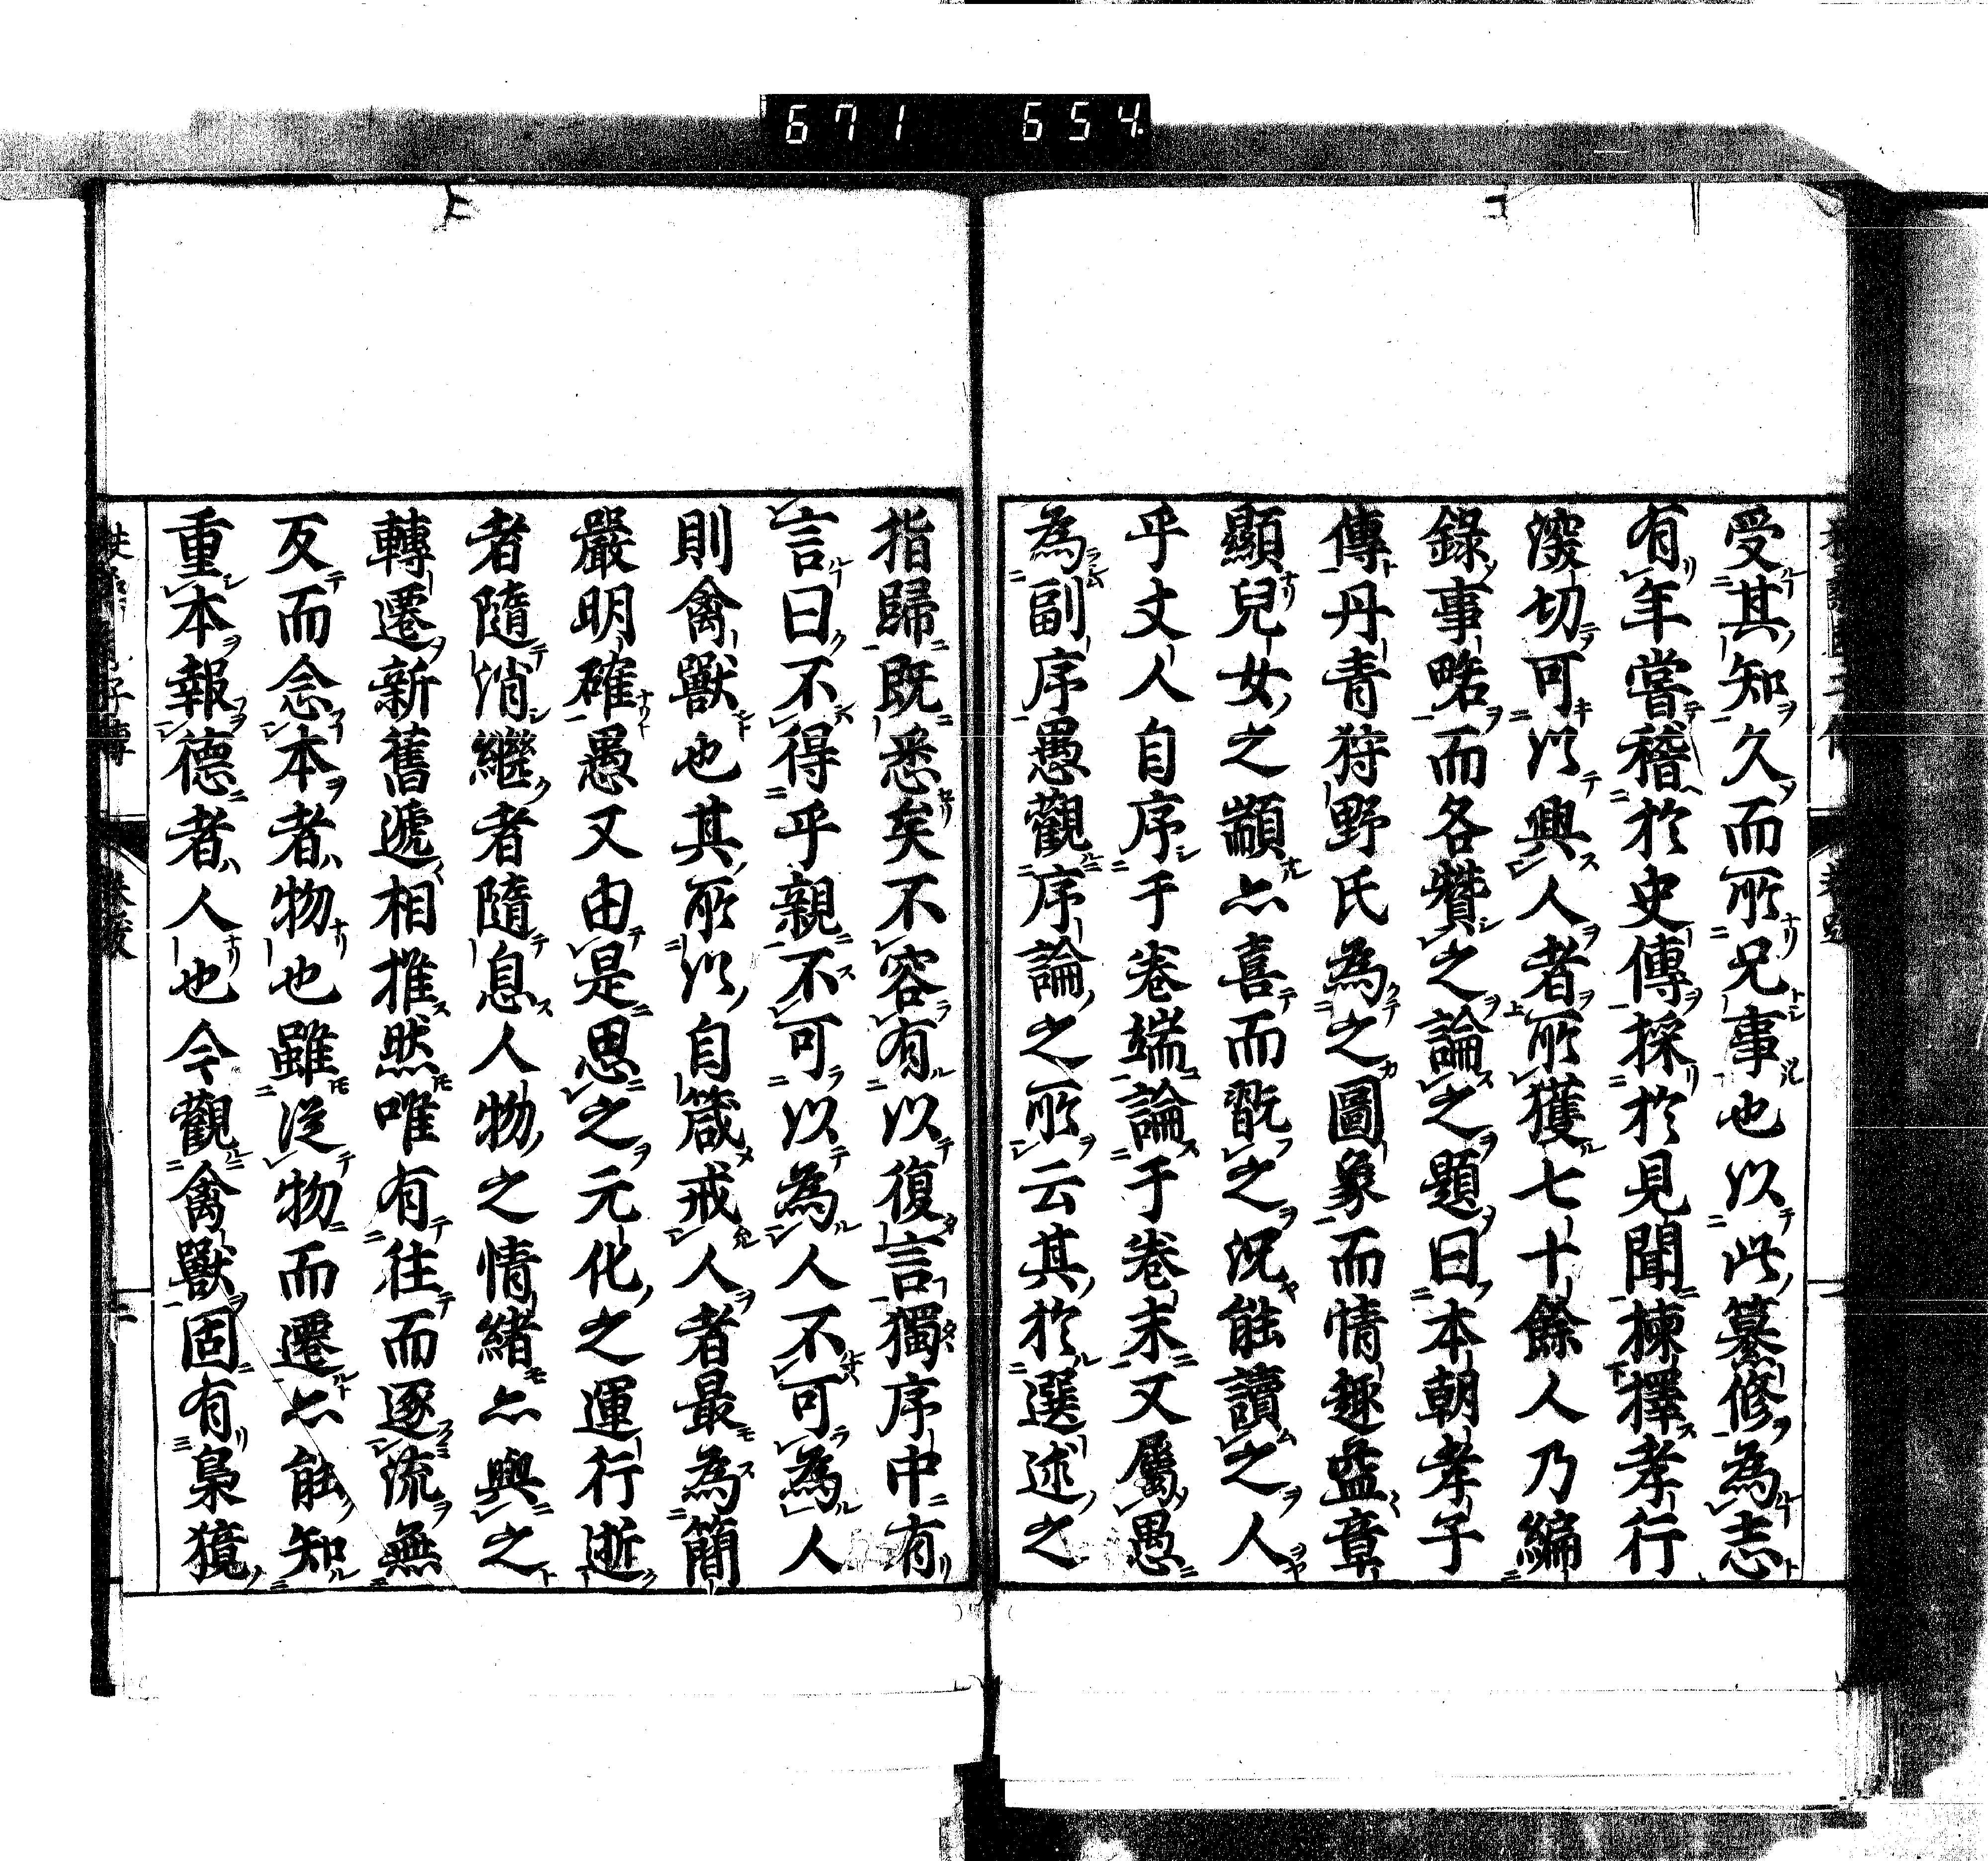 671 654
受其知久而所兄事也以此纂修為志
有年嘗稽於史傳採於見聞揀擇孝行
深切可以興人者所獲七十餘人乃編
錄事略而各贊之論之題曰本朝孝子
傳丹青狩野氏為之圖象而情趣益章
顯兒女之顓亦喜而翫之況能讀之人
乎丈人自序于卷端論于卷末又屬愚
為副序愚觀序論之所云其於選述之
指歸既悉矣不容有以復言獨序中有
言曰不得乎親不可以為人不可為人
則禽獸也其所以自箴戒人者最為簡
嚴明確愚又由是思之元化之運行逝
者隨消繼者隨息人物之情緒亦與之
轉遷新舊遞相推然唯有往而逐流無
反而念本者物也雖從物而遷亦能知
重本報德者人也今觀禽獸固有梟獍